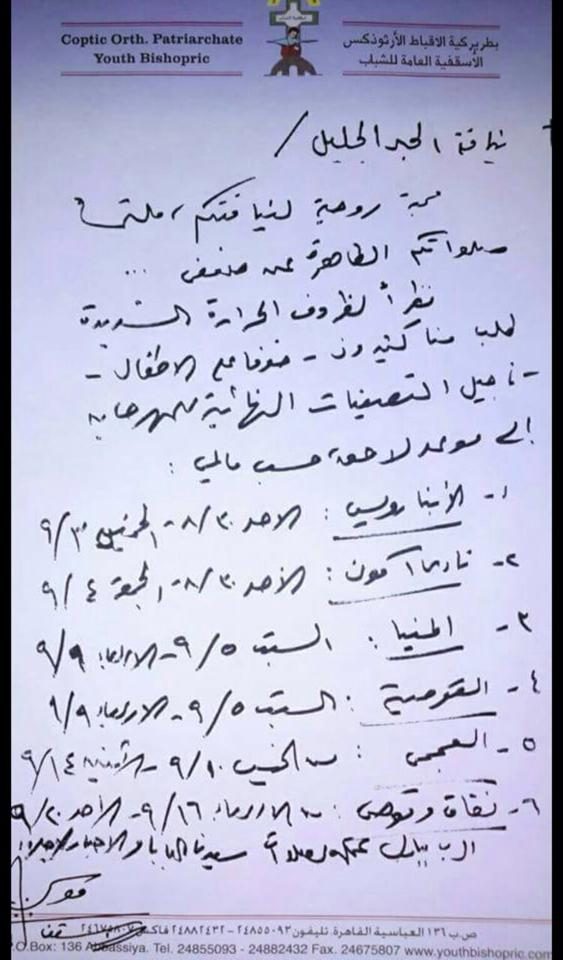 Coptic Orth. Patriarchate
Youth Bishopric
بطريركية الأقباط الأرثوذكس
الأسقفية العامة للشباب
نيافة الحبر الجليل /
محبة روحية لنيافتكم، ملتمساً
صلواتكم الطاهرة عن ضعفى ...
نظراً لظروف الحرارة الشديدة
طلب منا كثيرون - خوفا على الاطفال -
تأجيل التصفيات النهائية للمهرجان
إلى موعد لاحق، حسب مالي :
١- الأنبا رويس : الاحد ٨/٣٠ - الخميس ٩/٣
٢- : الأحد ٨/٣٠ - الجمعة ٩/٤
٣- المنيا : السبت ٩/٥ - الاربعاء ٩/٩
٤- القوصية : السبت ٩/٥ - الاربعاء ٩/٩
٥- العجمى : من الخميس ٩/١٠ - الأثنين ٩/١٤
٦- نقادة وقوص : من الاربعاء ٩/١٦ - الأحد ٩/٢٠
الرب يبارك بصلوات سيدنا البابا والاحبار الاجلاء
ص.ب ١٣٦ العباسية القاهرة. تليفون ٢٤٨٥٥٠٩٣ - ٢٤٨٨٢٤٣٢ فاكس ٢٤٦٧٥٨٠٧
P.O.Box: 136 Abbassiya. Tel. 24855093 - 24882432 Fax. 24675807 www.youthbishopric.com